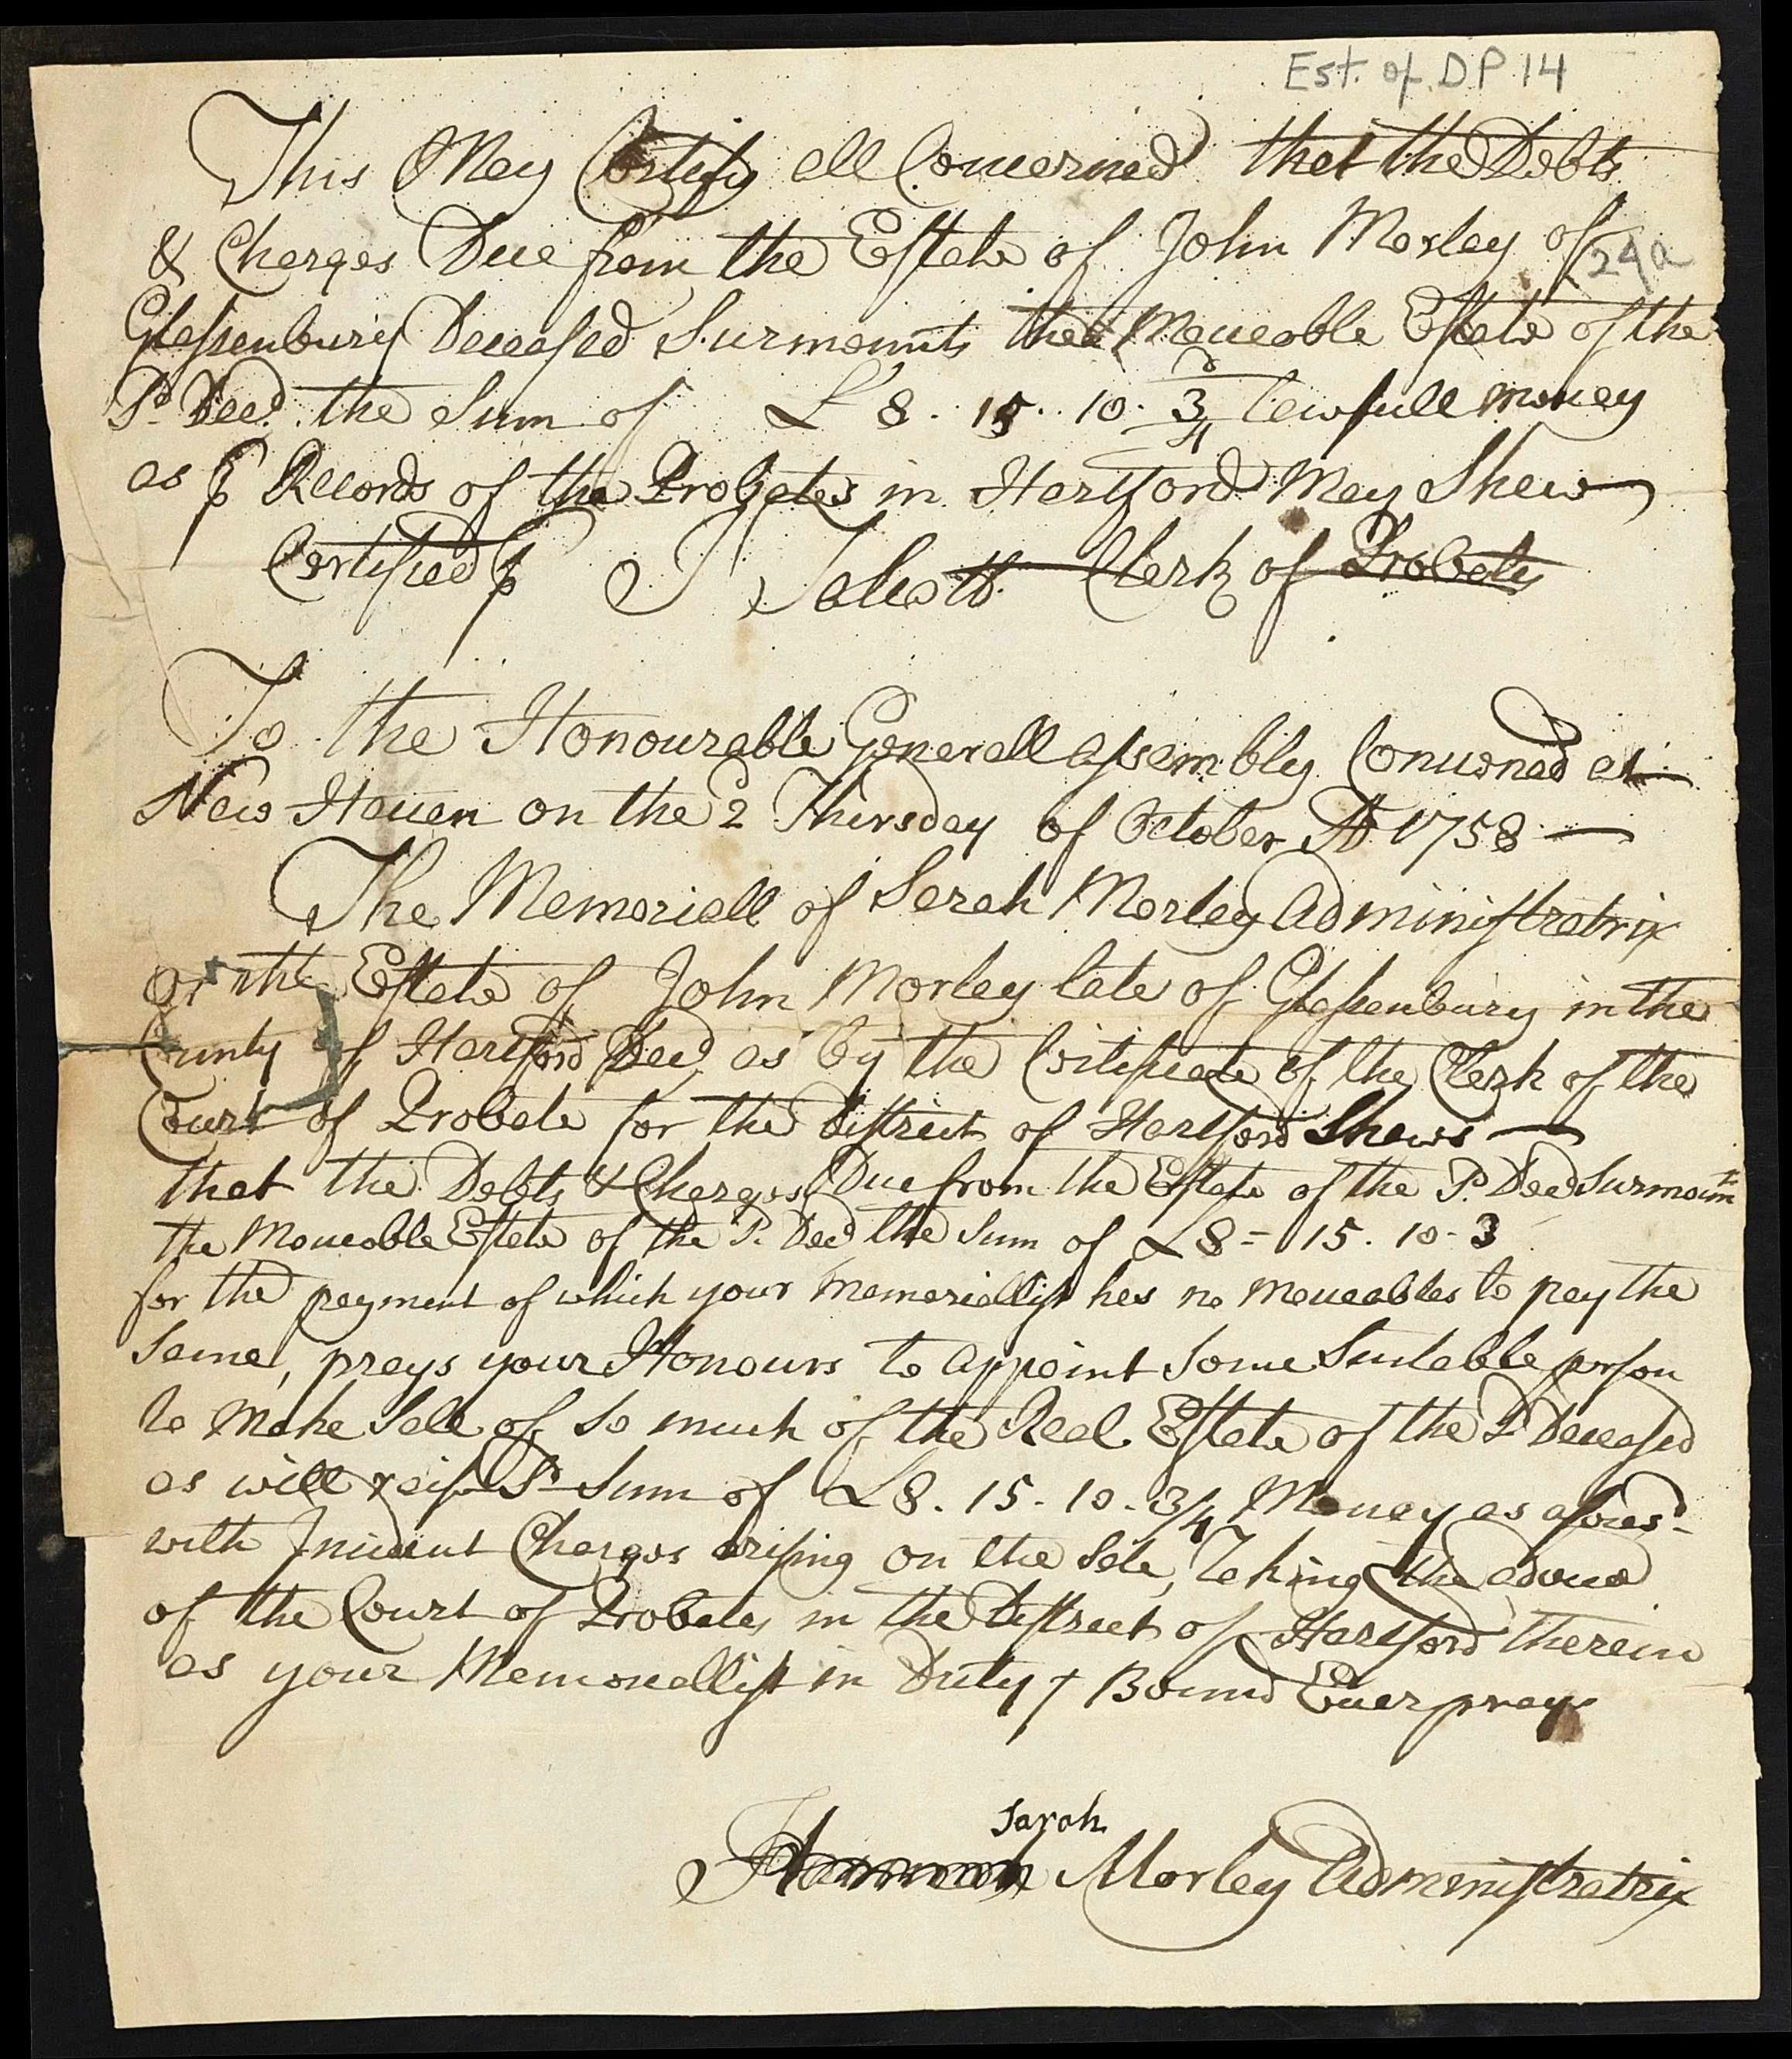 Est. of DP 14
This May Certify all Concerned that the Debts
& Charges Due from the Estate of John Morley of
24a
Glassenbury Deceased Surmounts the Moueable Estate of the
Sd. Decd. the Sum of £ 8. 15. 10. 3/4 d lawfull money
as ⅌ Records of the Probates in Hartford May Shew
Certified ⅌ J Talcott Clerk of Probates
To the Honourable Generall assembly Conuened at
New Hauen on the 2 Thursday of October AD 1758
The Memoriall of Sarah Morley Administratrix
on the Estate of John Morley late of Glassenbury in the
County of Hartford Decd as by the Certificate of the Clerk of the
Court of Probate for the District of Hartford Shews
that the Debts & Charges Due from the Estate of the Sd. Decd Surmounts
the Moueable Estate of the Sd. Decd the Sum of £8= 15. 10. 3
for the payment of which your memoriallist has no moueables to pay the
Same, prays your Honours to appoint Some Suitable person
to Make Sale of So much of the Real Estate of the Sd Deceased
as will raise Sd Sum of £8. 15. 10. 3/4 Money as aforesd
with Incident Charges arising on the Sale, Taking the aduice
of the Court of Probates in the District of Hartford therein
as your Memoriallist in Duty Bound Euer prays
Sarah
Hannah Morley Administratrix